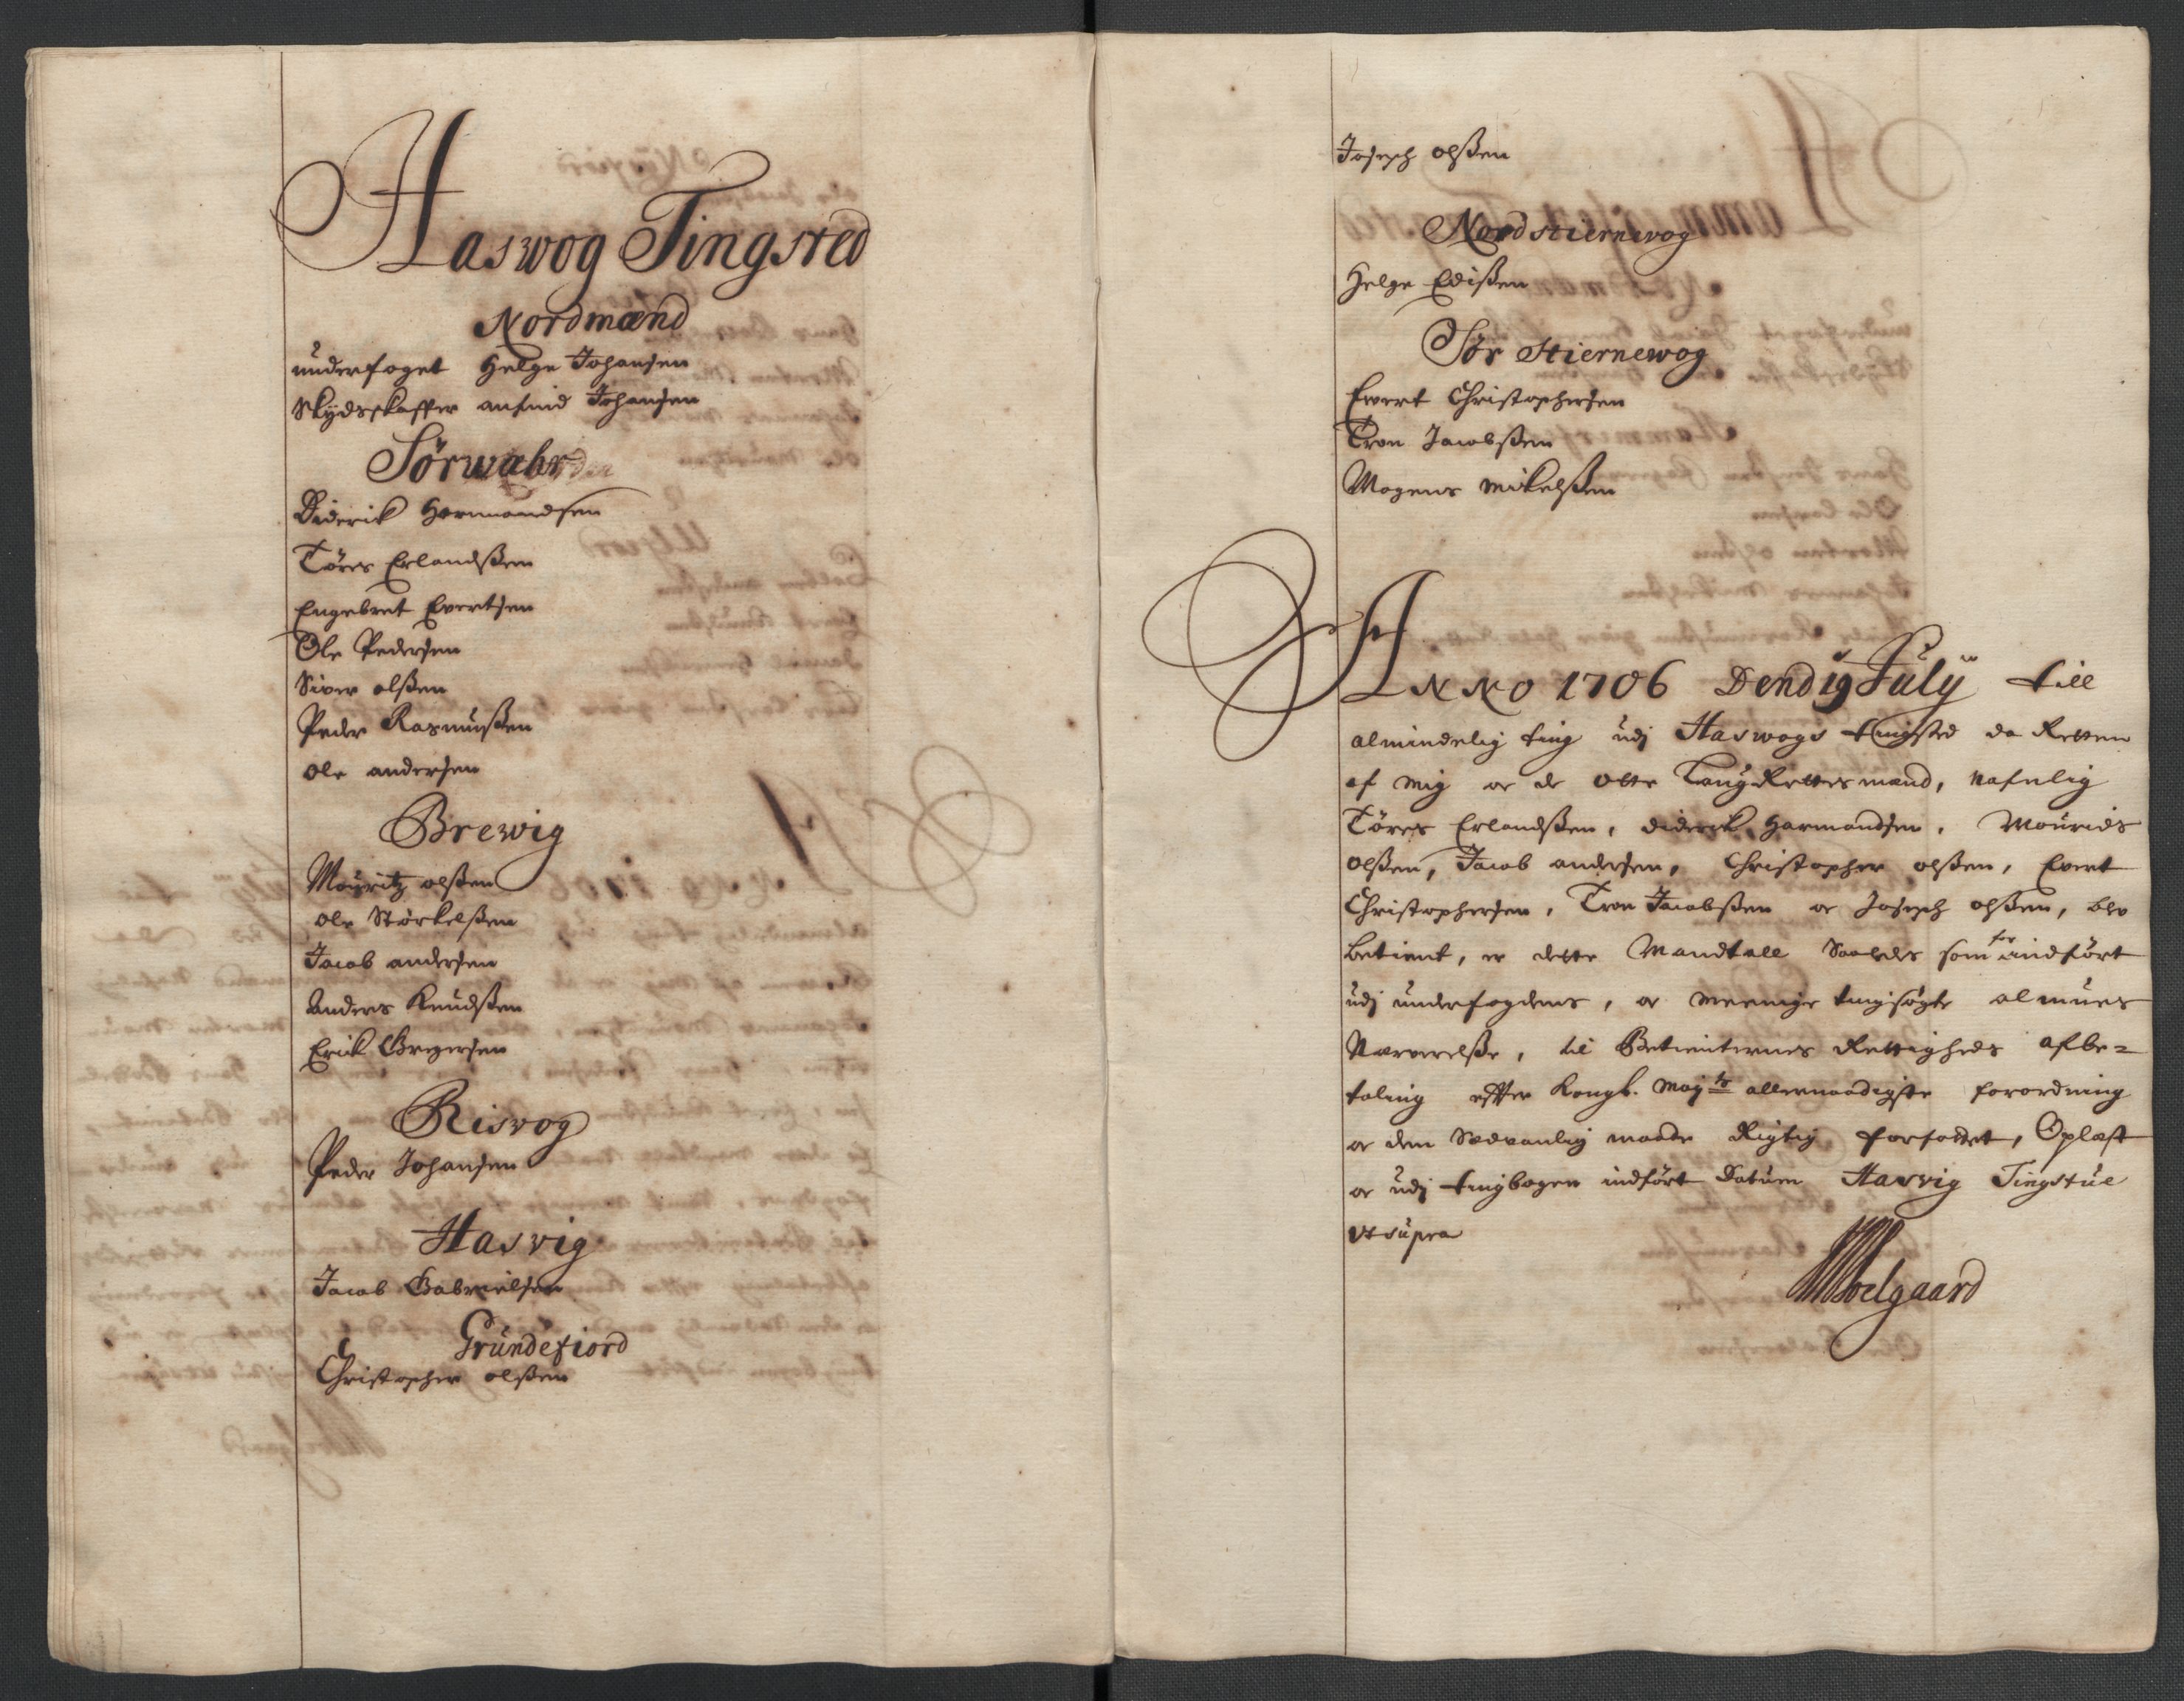 Haswog Tingsted
Nordmænd
underfoget Helge Johansen
Skydsskaffer anfind Johansen
Sørwahr
Diderik Harmandsen
Tørres Erlandßen
Engebret Evertsen
Ole Pedersen
Siver olßen
Peder Rasmußen
ole andersen
Brewig
Mouritz olßen
ole Størkelßen
Jacob andersen
Anders Knudßen
Erick Gregersen
Risvog
Peder Johansen
Hasvig
Jacob Gabrielsen
Grundefiord
Christopher olßen
Joseph olßen
Nordstiernevog
Helge Edißen
Sør Stiernewog
Evert Christophersen
Tron Jacobßen
Mogens Mikelßen
ANNO 1706 Dend 19 July till
almindelig ting udj Haswogs tingsted da Retten
af mig oc de otte LaugRettesmænd, nafnlig
Tørres Erlandßen, diderik Harmandsen, Mourids
olßen, Jacob andersen, Christopher olßen, Evert
Christophersen, Tron Jacobßen oc Joseph olßen, blev
betient, er dette Mandtall Saaledes som for indført
udj underfogdens, oc meenige tingsøgte almues
Nærverelße, til Betienternes Rettigheds afbe=
taling effter Kongl. May.ts allernaadigste forordning
oc den Sædvanlig maade Rigtig forfattet, Oplæst
oc udj tingbogen indført Datum Hasvig Tingstue
Ut supra